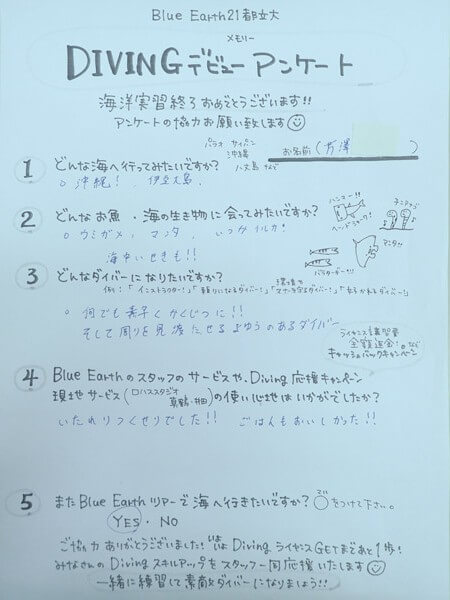 Blue Earth21都立大
メモリー
DIVINGデビューアンケート
海洋実習終了おめでとうございます!!
アンケートの協力お願い致します
お名前(芳澤 )
パラオ サイパン
沖縄
八丈島 など
1 どんな海へ行ってみたいですか?
○ 沖縄!、伊豆大島、
2 どんなお魚・海の生き物に会ってみたいですか?
○ ウミガメ、マンタ、いつかイルカ!
海中いせきも!!
ハンマー!!
ヘッドシャーク!
マンタ!!
バラクーダー!!
3 どんなダイバーになりたいですか?
例:「インストラクター!」「頼りになるダイバー!」「環境やマナーを守るダイバー!」
○ 何でも素早くかくじつに!!
そして周りを見渡たせるよゆうのあるダイバー
ライセンス講習費
全額返金!など
キャッシュバックキャンペーン
4 Blue Earthのスタッフのサービスや、Diving応援キャンペーン
現地サービス(ロハススタジオ
真鶴・井田)の使い心地はいかがでしたか?
いたれりつくせりでした!! ごはんもおいしかった!!
5 またBlue Earthツアーで海へ行きたいですか?○をつけて下さい。
YES・NO
ご協力ありがとうございました!いよいよDivingライセンスGETまであと1歩!
みなさんのDivingスキルアップをスタッフ一同応援いたします
一緒に練習して素敵ダイバーになりましょう!!